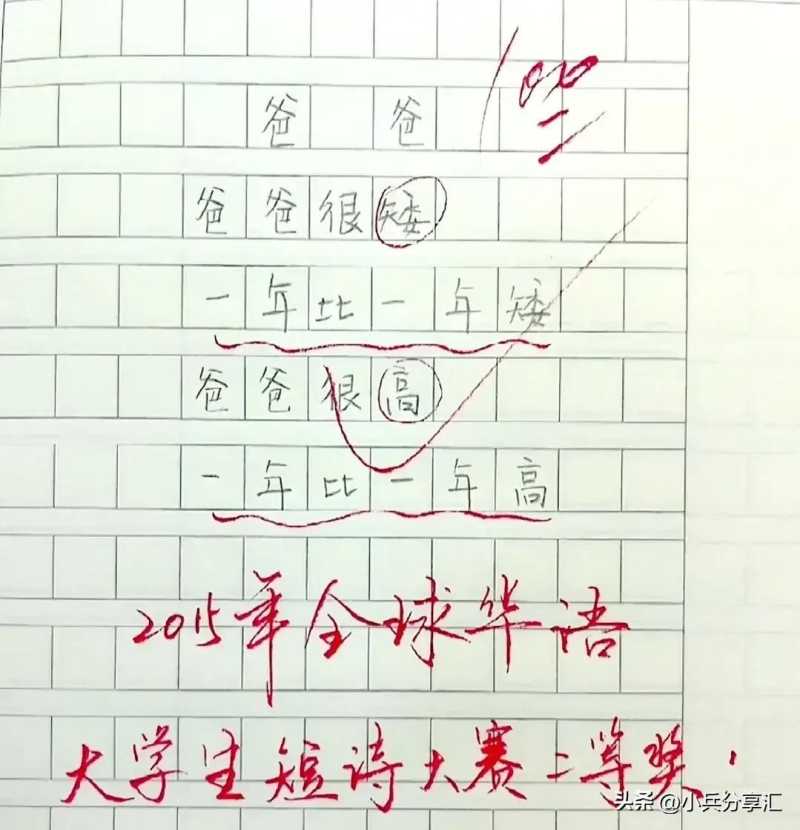 100
爸爸
爸爸很矮
一年比一年矮
爸爸很高
一年比一年高
2015年全球华语
大学生短诗大赛二等奖.
头条@小兵分享汇